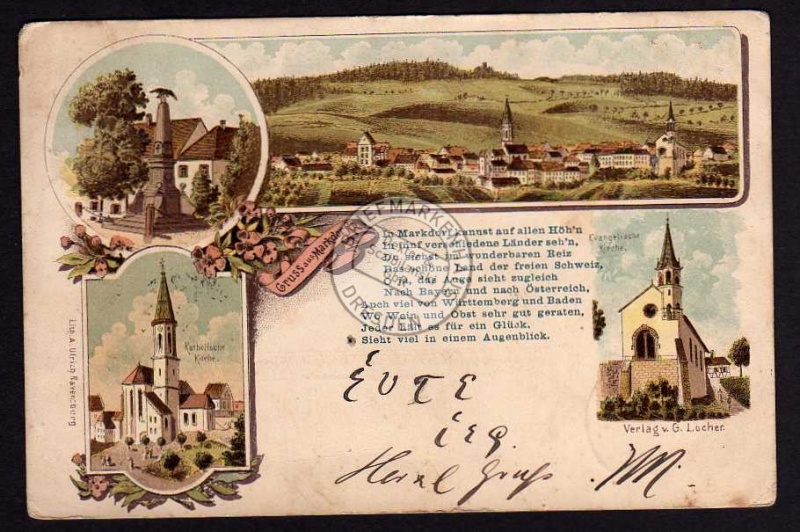 Gruss aus Markdorf
In Markdorf kannst auf allen Höh'n
In fünf verschiedene Länder seh'n,
Du siehst im wunderbaren Reiz
Das schöne Land der freien Schweiz,
O ja, das Auge sieht zugleich
Nach Bayern und nach Österreich,
Auch viel von Württemberg und Baden
Wo Wein und Obst sehr gut geraten,
Jeder hält es für ein Glück,
Sieht viel in einem Augenblick.
Evangelische
Kirche.
Katholische
Kirche.
Lith. A. Ulrich, Ravensburg
Verlag v. G. Locher.
Herzl Gruß
BRIEFMARKEN
DRESDEN